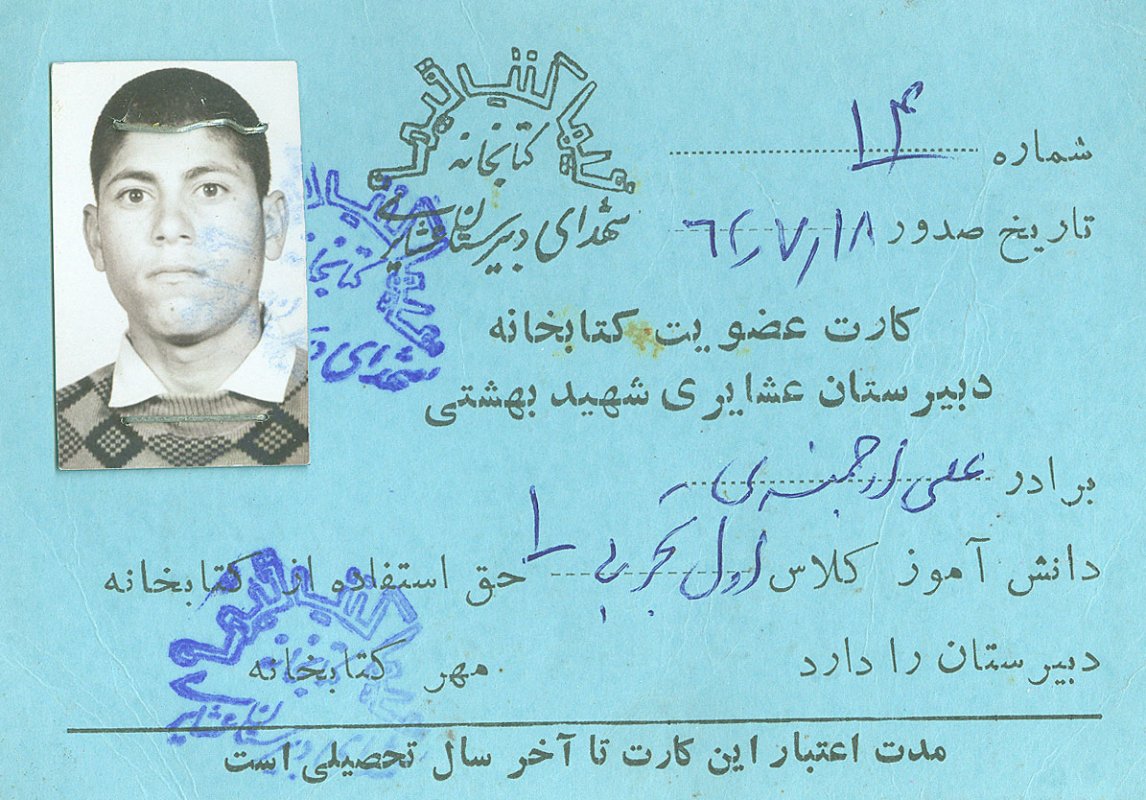 کتابخانه
شهدای دبیرستان عشایری
شماره ۱۴
تاریخ صدور ۶۲/۷/۱۸
کارت عضویت کتابخانه
دبیرستان عشایری شهید بهشتی
برادر
دانش آموز کلاس اول تجربی ۱ حق استفاده از کتابخانه
دبیرستان را دارد
مهر کتابخانه
مدت اعتبار این کارت تا آخر سال تحصیلی است